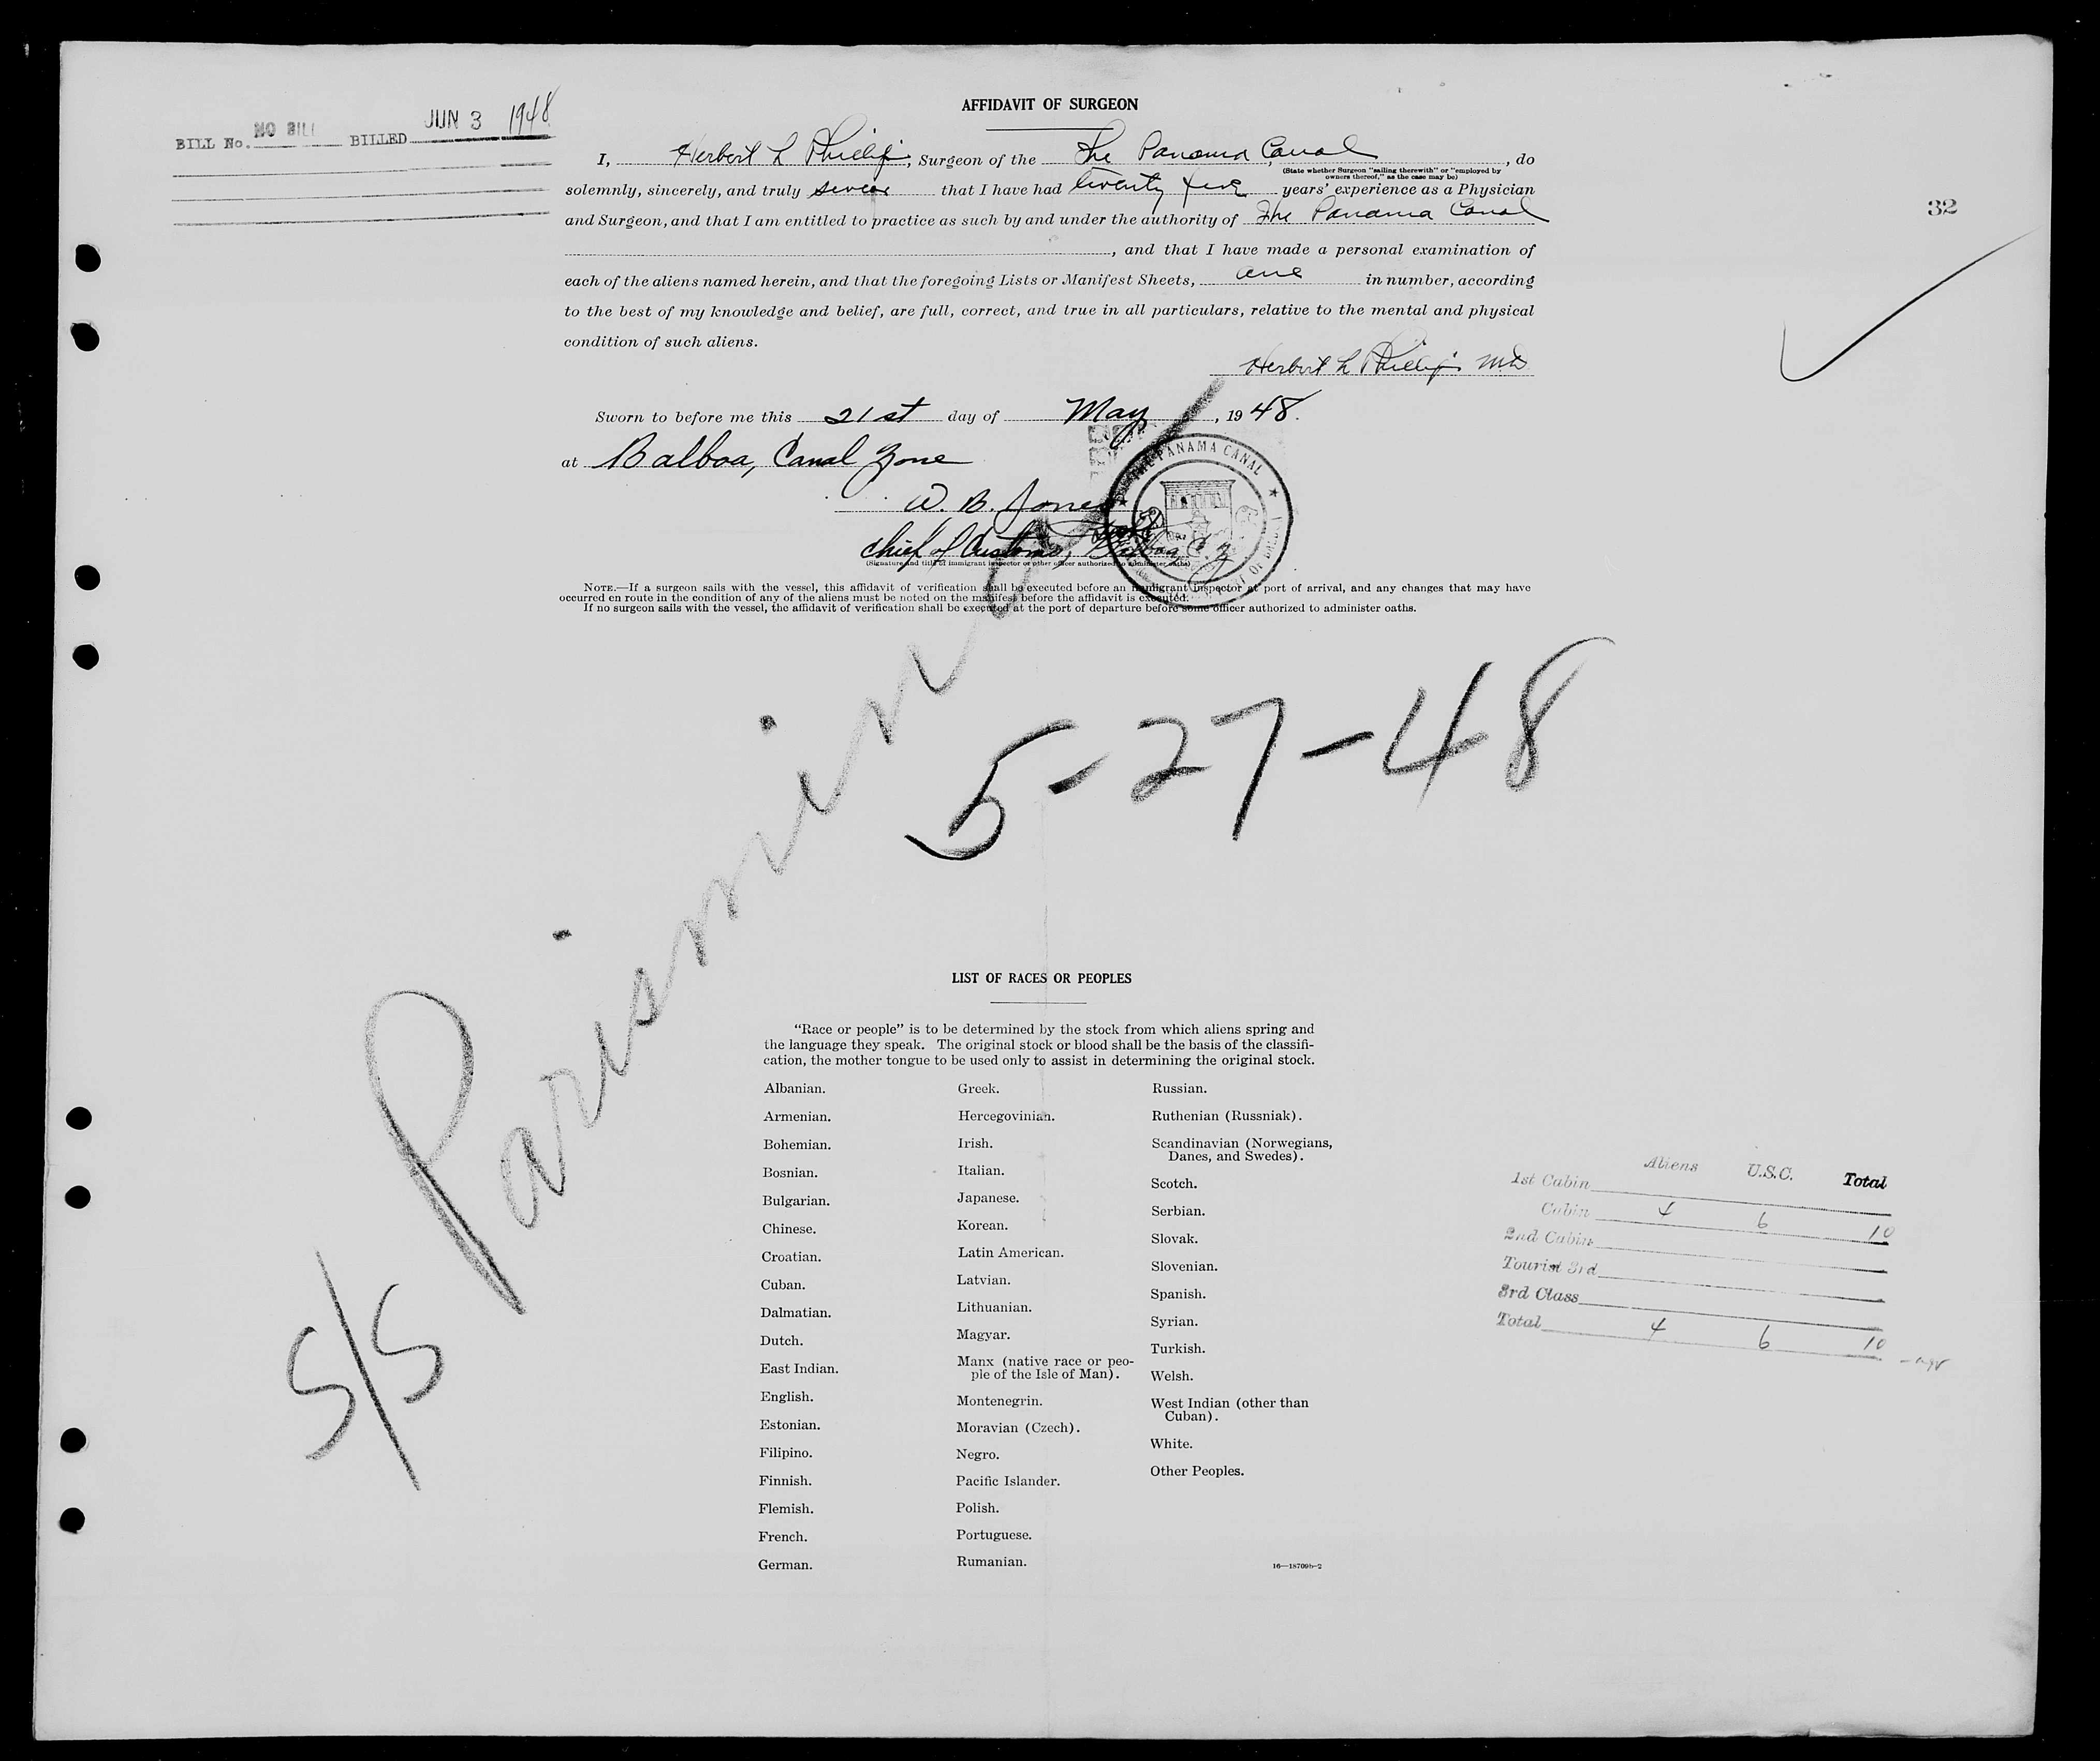 BILL No. NO BILL BILLED JUN 3 1948
AFFIDAVIT OF SURGEON
32
I, Herbert L Phillips, Surgeon of the The Panama Canal, do
(State whether Surgeon "sailing therewith" or "employed by
owners thereof," as the case may be)
solemnly, sincerely, and truly swear that I have had twenty five years' experience as a Physician
and Surgeon, and that I am entitled to practice as such by and under the authority of The Panama Canal
, and that I have made a personal examination of
each of the aliens named herein, and that the foregoing Lists or Manifest Sheets, one in number, according
to the best of my knowledge and belief, are full, correct, and true in all particulars, relative to the mental and physical
condition of such aliens.
Herbert L Phillips MD
Sworn to before me this 21st day of May, 1948.
at Balboa, Canal Zone
W. B. Jones
Chief of Customs, Balboa C.Z.
(Signature and title of immigrant inspector or other officer authorized to administer oaths)
THE PANAMA CANAL
NOTE.—If a surgeon sails with the vessel, this affidavit of verification shall be executed before an immigrant inspector at port of arrival, and any changes that may have
occurred en route in the condition of any of the aliens must be noted on the manifest before the affidavit is executed.
If no surgeon sails with the vessel, the affidavit of verification shall be executed at the port of departure before some officer authorized to administer oaths.
S/S Parismina
5-27-48
LIST OF RACES OR PEOPLES
"Race or people" is to be determined by the stock from which aliens spring and
the language they speak. The original stock or blood shall be the basis of the classifi-
cation, the mother tongue to be used only to assist in determining the original stock.
Albanian.
Armenian.
Bohemian.
Bosnian.
Bulgarian.
Chinese.
Croatian.
Cuban.
Dalmatian.
Dutch.
East Indian.
English.
Estonian.
Filipino.
Finnish.
Flemish.
French.
German.
Greek.
Hercegovinian.
Irish.
Italian.
Japanese.
Korean.
Latin American.
Latvian.
Lithuanian.
Magyar.
Manx (native race or peo-
ple of the Isle of Man).
Montenegrin.
Moravian (Czech).
Negro.
Pacific Islander.
Polish.
Portuguese.
Rumanian.
Russian.
Ruthenian (Russniak).
Scandinavian (Norwegians,
Danes, and Swedes).
Scotch.
Serbian.
Slovak.
Slovenian.
Spanish.
Syrian.
Turkish.
Welsh.
West Indian (other than
Cuban).
White.
Other Peoples.
16—18709b-2
Aliens U.S.C. Total
1st Cabin
Cabin 4 6 10
2nd Cabin
Tourist 3rd
3rd Class
Total 4 6 10